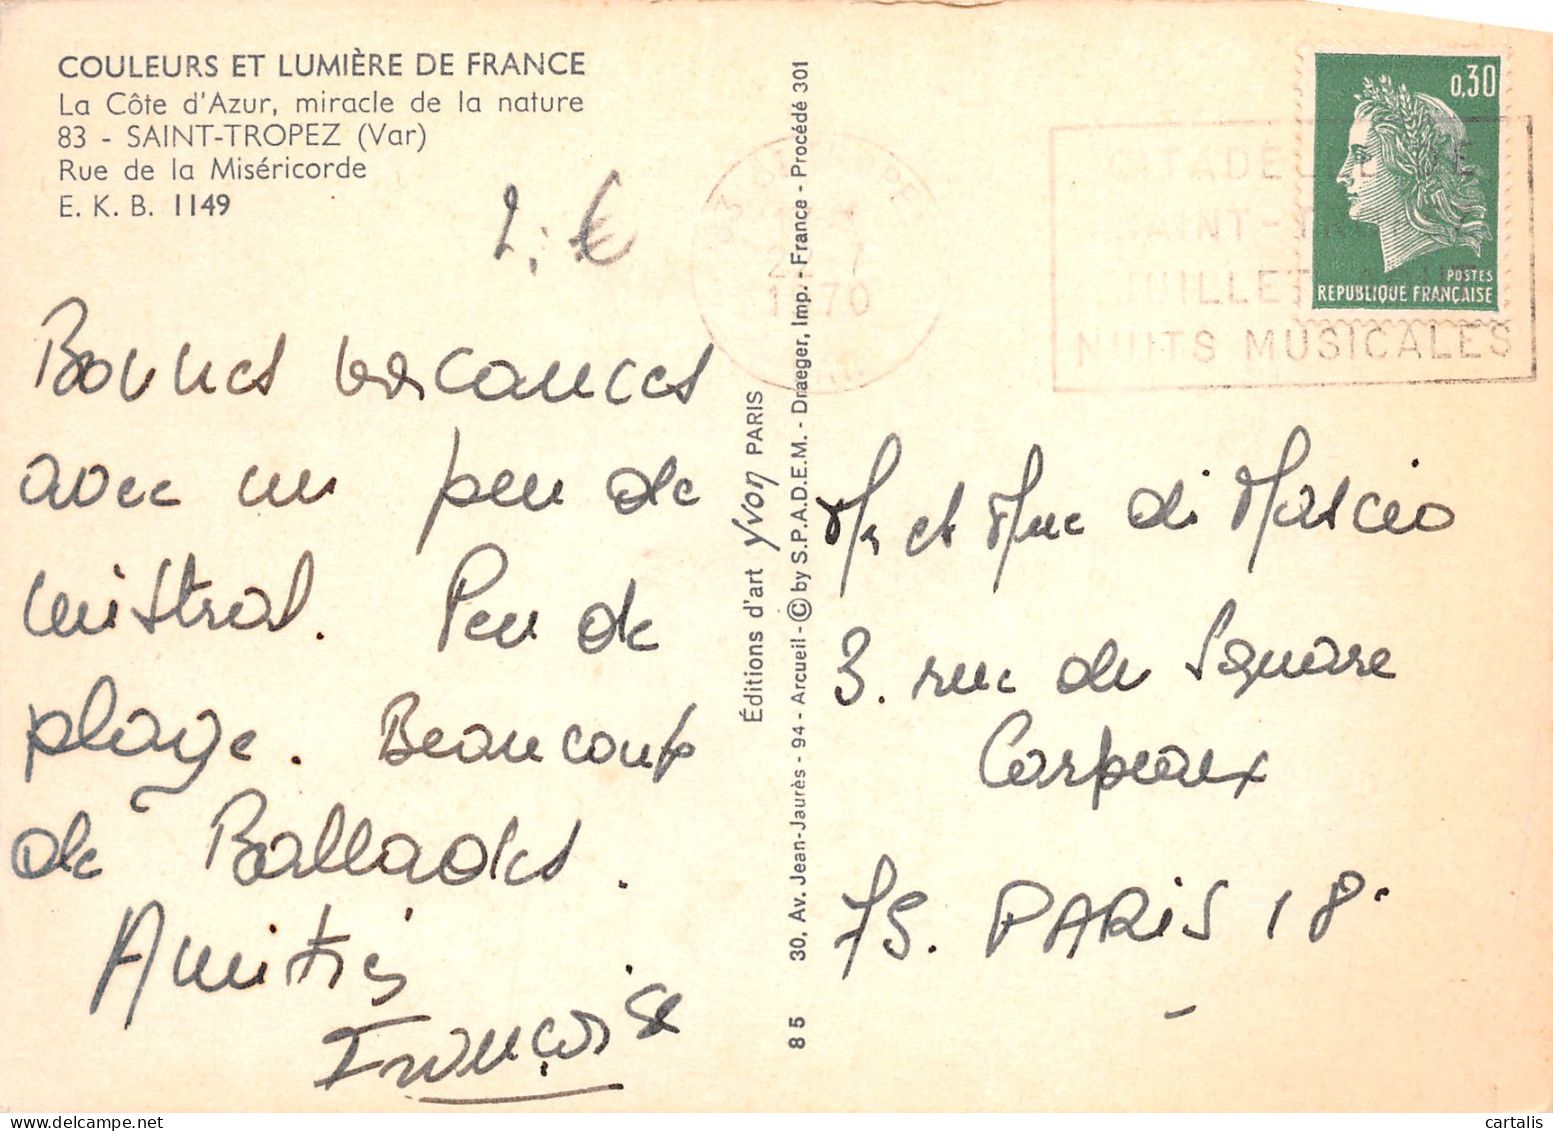 COULEURS ET LUMIÈRE DE FRANCE
La Côte d'Azur, miracle de la nature
83 - SAINT-TROPEZ (Var)
Rue de la Miséricorde
E. K. B. 1149
2.€
Bonnes vacances
avec un peu de
mistral. Peu de
plage. Beaucoup
de Ballades.
Amitiés
Françoise
Éditions d'art yvon PARIS
85 30, Av. Jean-Jaurès - 94 - Arcueil - © by S.P.A.D.E.M. - Draeger, Imp. - France - Procédé 301
1970
CITADELLE DE
SAINT-TROPEZ
JUILLET AOUT
NUITS MUSICALES
0,30
POSTES
REPUBLIQUE FRANÇAISE
Mr et Mme di Mascio
3. rue du Square
Carpeaux
75. PARIS 18e
cartalis